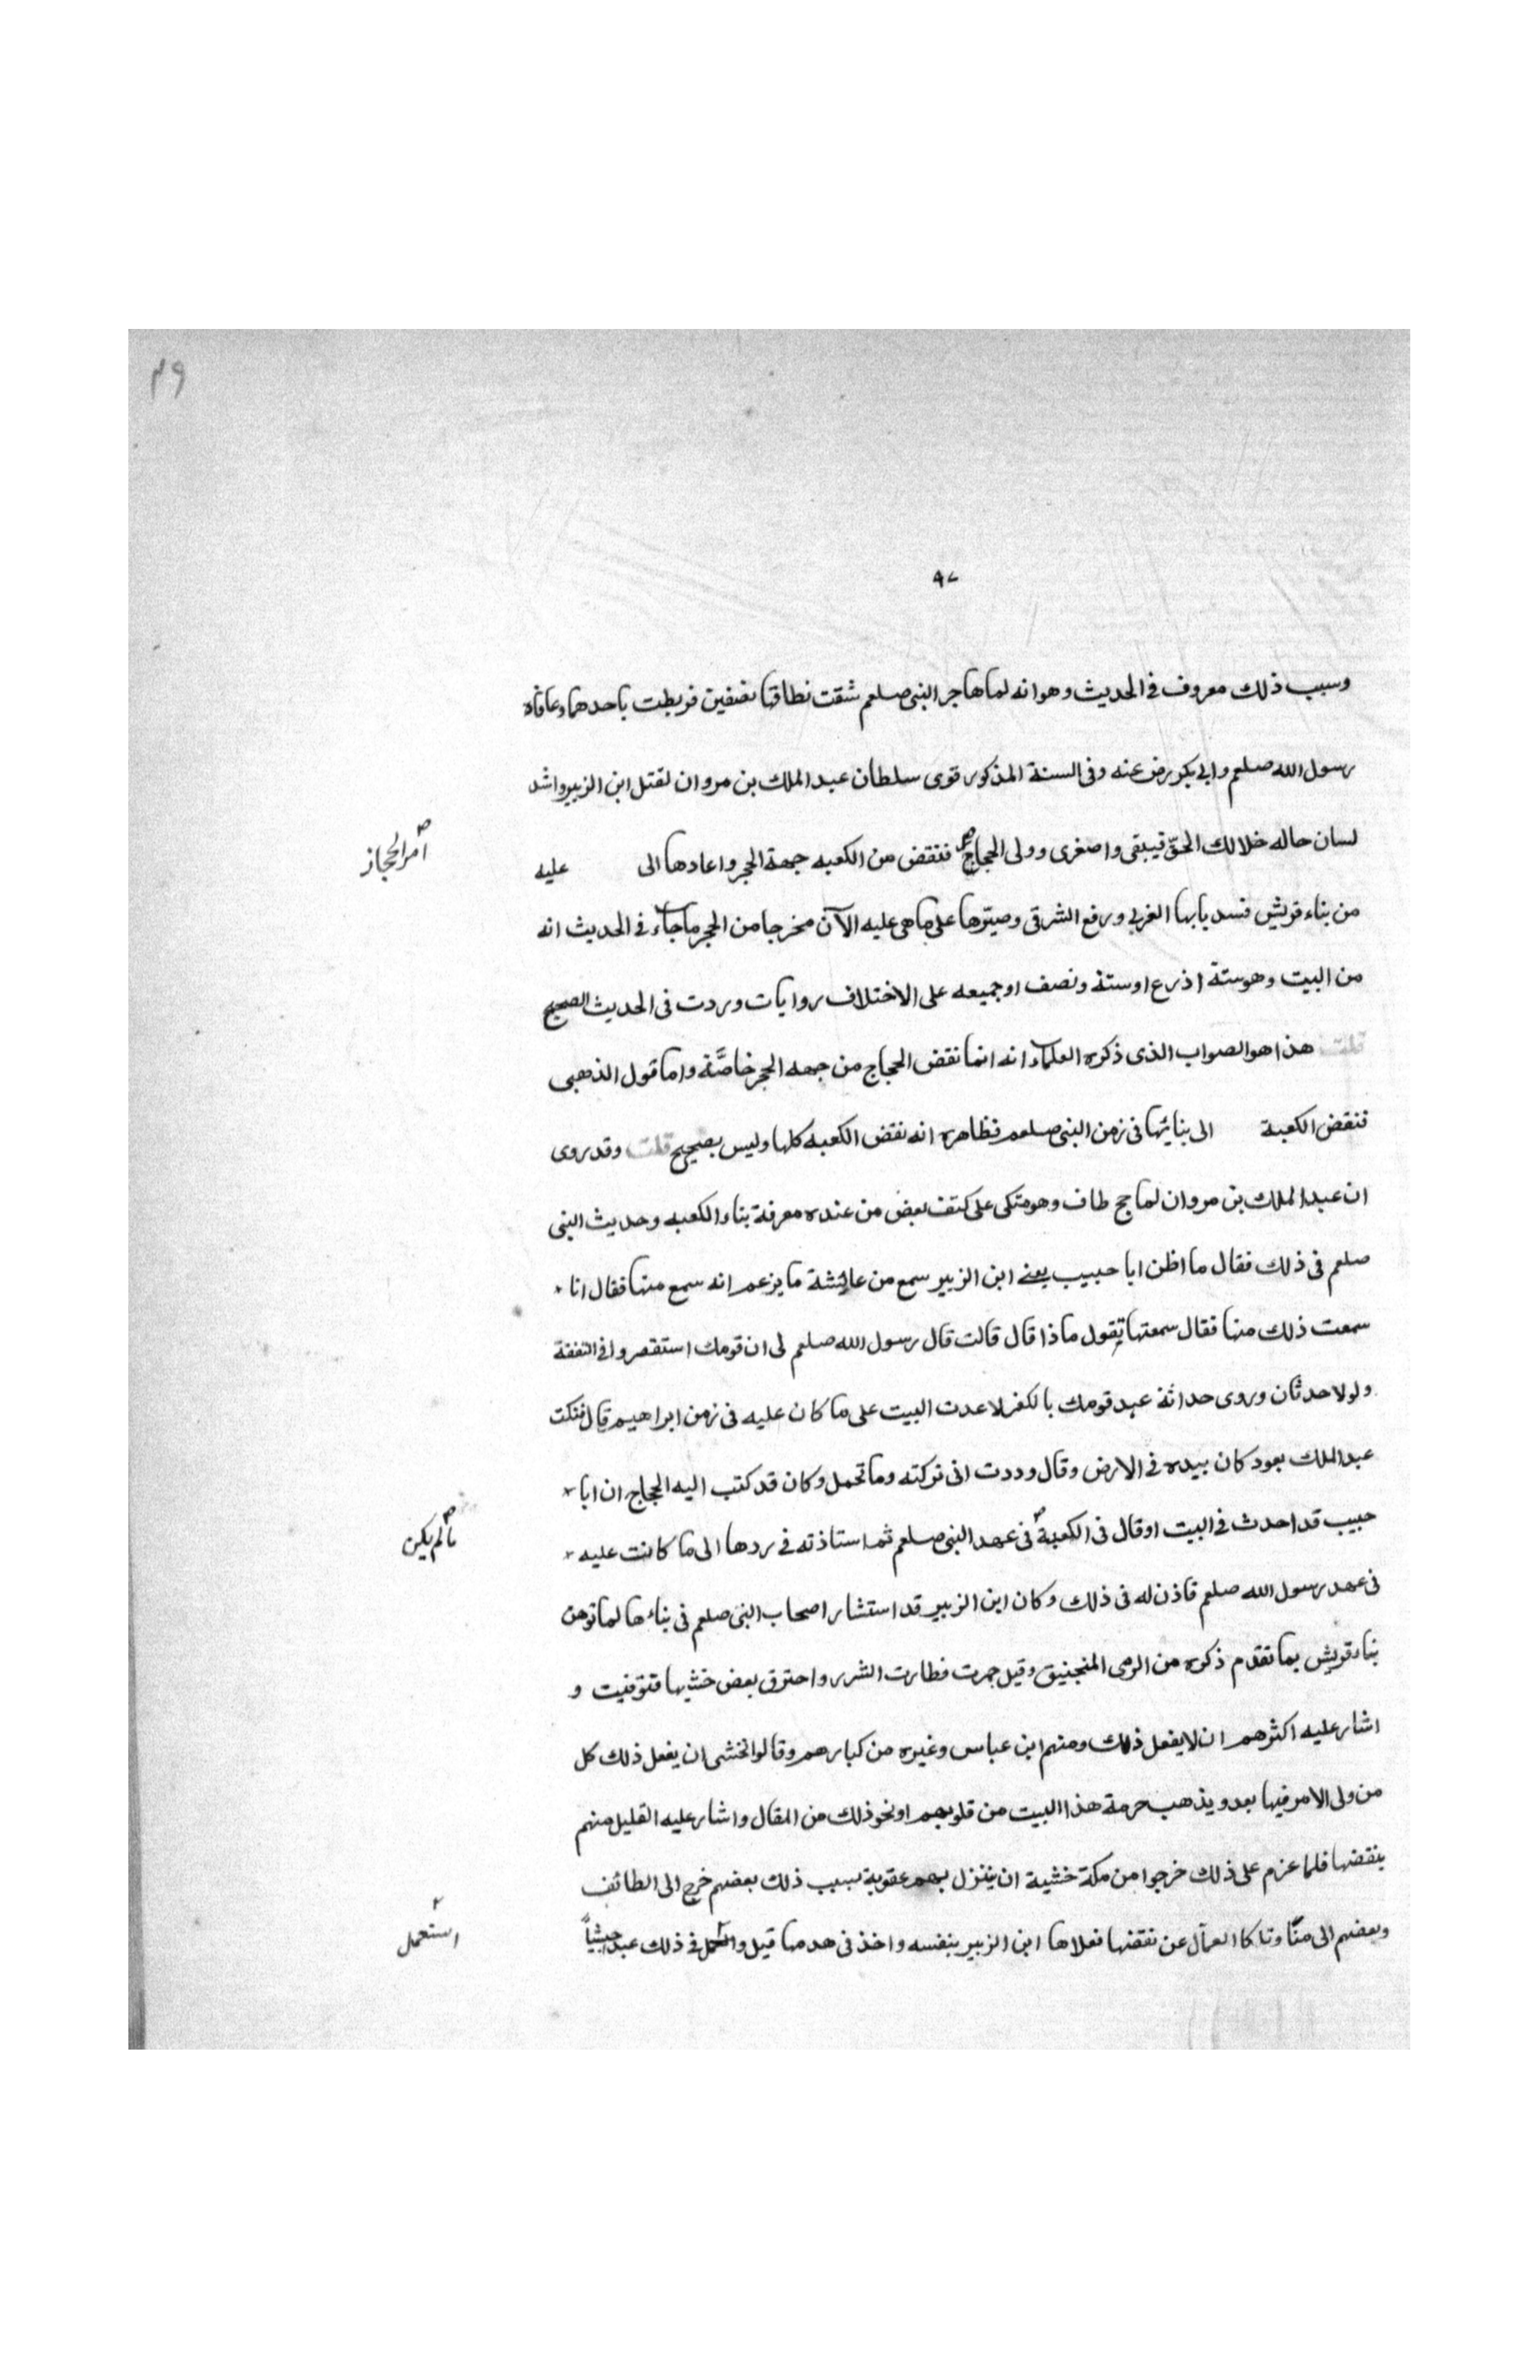 ٤٩
٩٧
وسبب ذلك معروف في الحديث وهو انه لما هاجر النبي صلعم شقت نطاقها نصفين فربطت باحدهما وعاقاه
رسول الله صلعم وابي بكر رض عنه وفي السنة المذكور قوى سلطان عبد الملك بن مروان لقتل ابن الزبير واشد
لسان حاله خلا لك الحق قيبقى واصغرى وولى الحجاج فنقض من الكعبه جهة الحجر واعادها الى عليه
امر الحجاز
من بناء قريش فسد بابها الغربي ورفع الشرقى وصيّرها على ما هى عليه الآن مخرجا من الحجر ما جاء في الحديث انه
من البيت وهو ستة اذرع او ستة ونصف او جميعه على الاختلاف روايات وردت في الحديث الصحيح
قلت هذا هو الصواب الذى ذكره العلماء انه انما نقض الحجاج من جهه الحجر خاصَّة واما قول الذهبى
فنقض الكعبة الى بنائها في زمن النبى صلعم فظاهره انه نقض الكعبه كلها وليس بصحيح قلت وقد روى
ان عبد الملك بن مروان لما حج طاف وهو متكى على كتف بعض من عنده معرفة بناء الكعبه وحديث النبى
صلعم فى ذلك فقال ما اظن ابا حبيب يعنے ابن الزبير سمع من عائشة ما يزعم انه سمع منها فقال انا
سمعت ذلك منها فقال سمعتها تقول ماذا قال قالت قال رسول الله صلعم لى ان قومك استقصروا في النفقة
ولولا حدثان وروى حداثة عهد قومك بالكفر لاعدت البيت على ما كان عليه فى زمن ابراهيم قال فنكت
عبد الملك بعود كان بيده في الارض وقال وددت انى تركته وما تحمل وكان قد كتب اليه الحجاج ان ابا
حبيب قد احدث في البيت او قال فى الكعبة فى عهد النبى صلعم ثم استاذنه في ردها الى ما كانت عليه
ما لم يكن
فى عهد رسول الله صلعم فاذن له فى ذلك وكان ابن الزبير قد استشار اصحاب النبى صلعم فى بناءها لما توهن
بناء قريش بما تقدم ذكره من الرمى المنجنيق وقيل جمرت فطارت الشرر واحترق بعض خشبها فتوقفيت و
اشار عليه اكثرهم ان لا يفعل ذلك ومنهم ابن عباس وغيره من كبارهم وقالوا نخشى ان يفعل ذلك كل
من ولى الامر فيها بعد ويذهب حرمة هذا البيت من قلوبهم او نحو ذلك من المقال واشار عليه القليل منهم
ينقضها فلما عزم على ذلك خرجوا من مكة خشية ان ينزل بهم عقوبة بسبب ذلك بعضهم خرج الى الطائف
وبعضهم الى منًا وتاكا العمال عن نقضها فعلاها ابن الزبير بنفسه واخذ فى هدمها قيل و في ذلك عبد حبشياً
استعمل